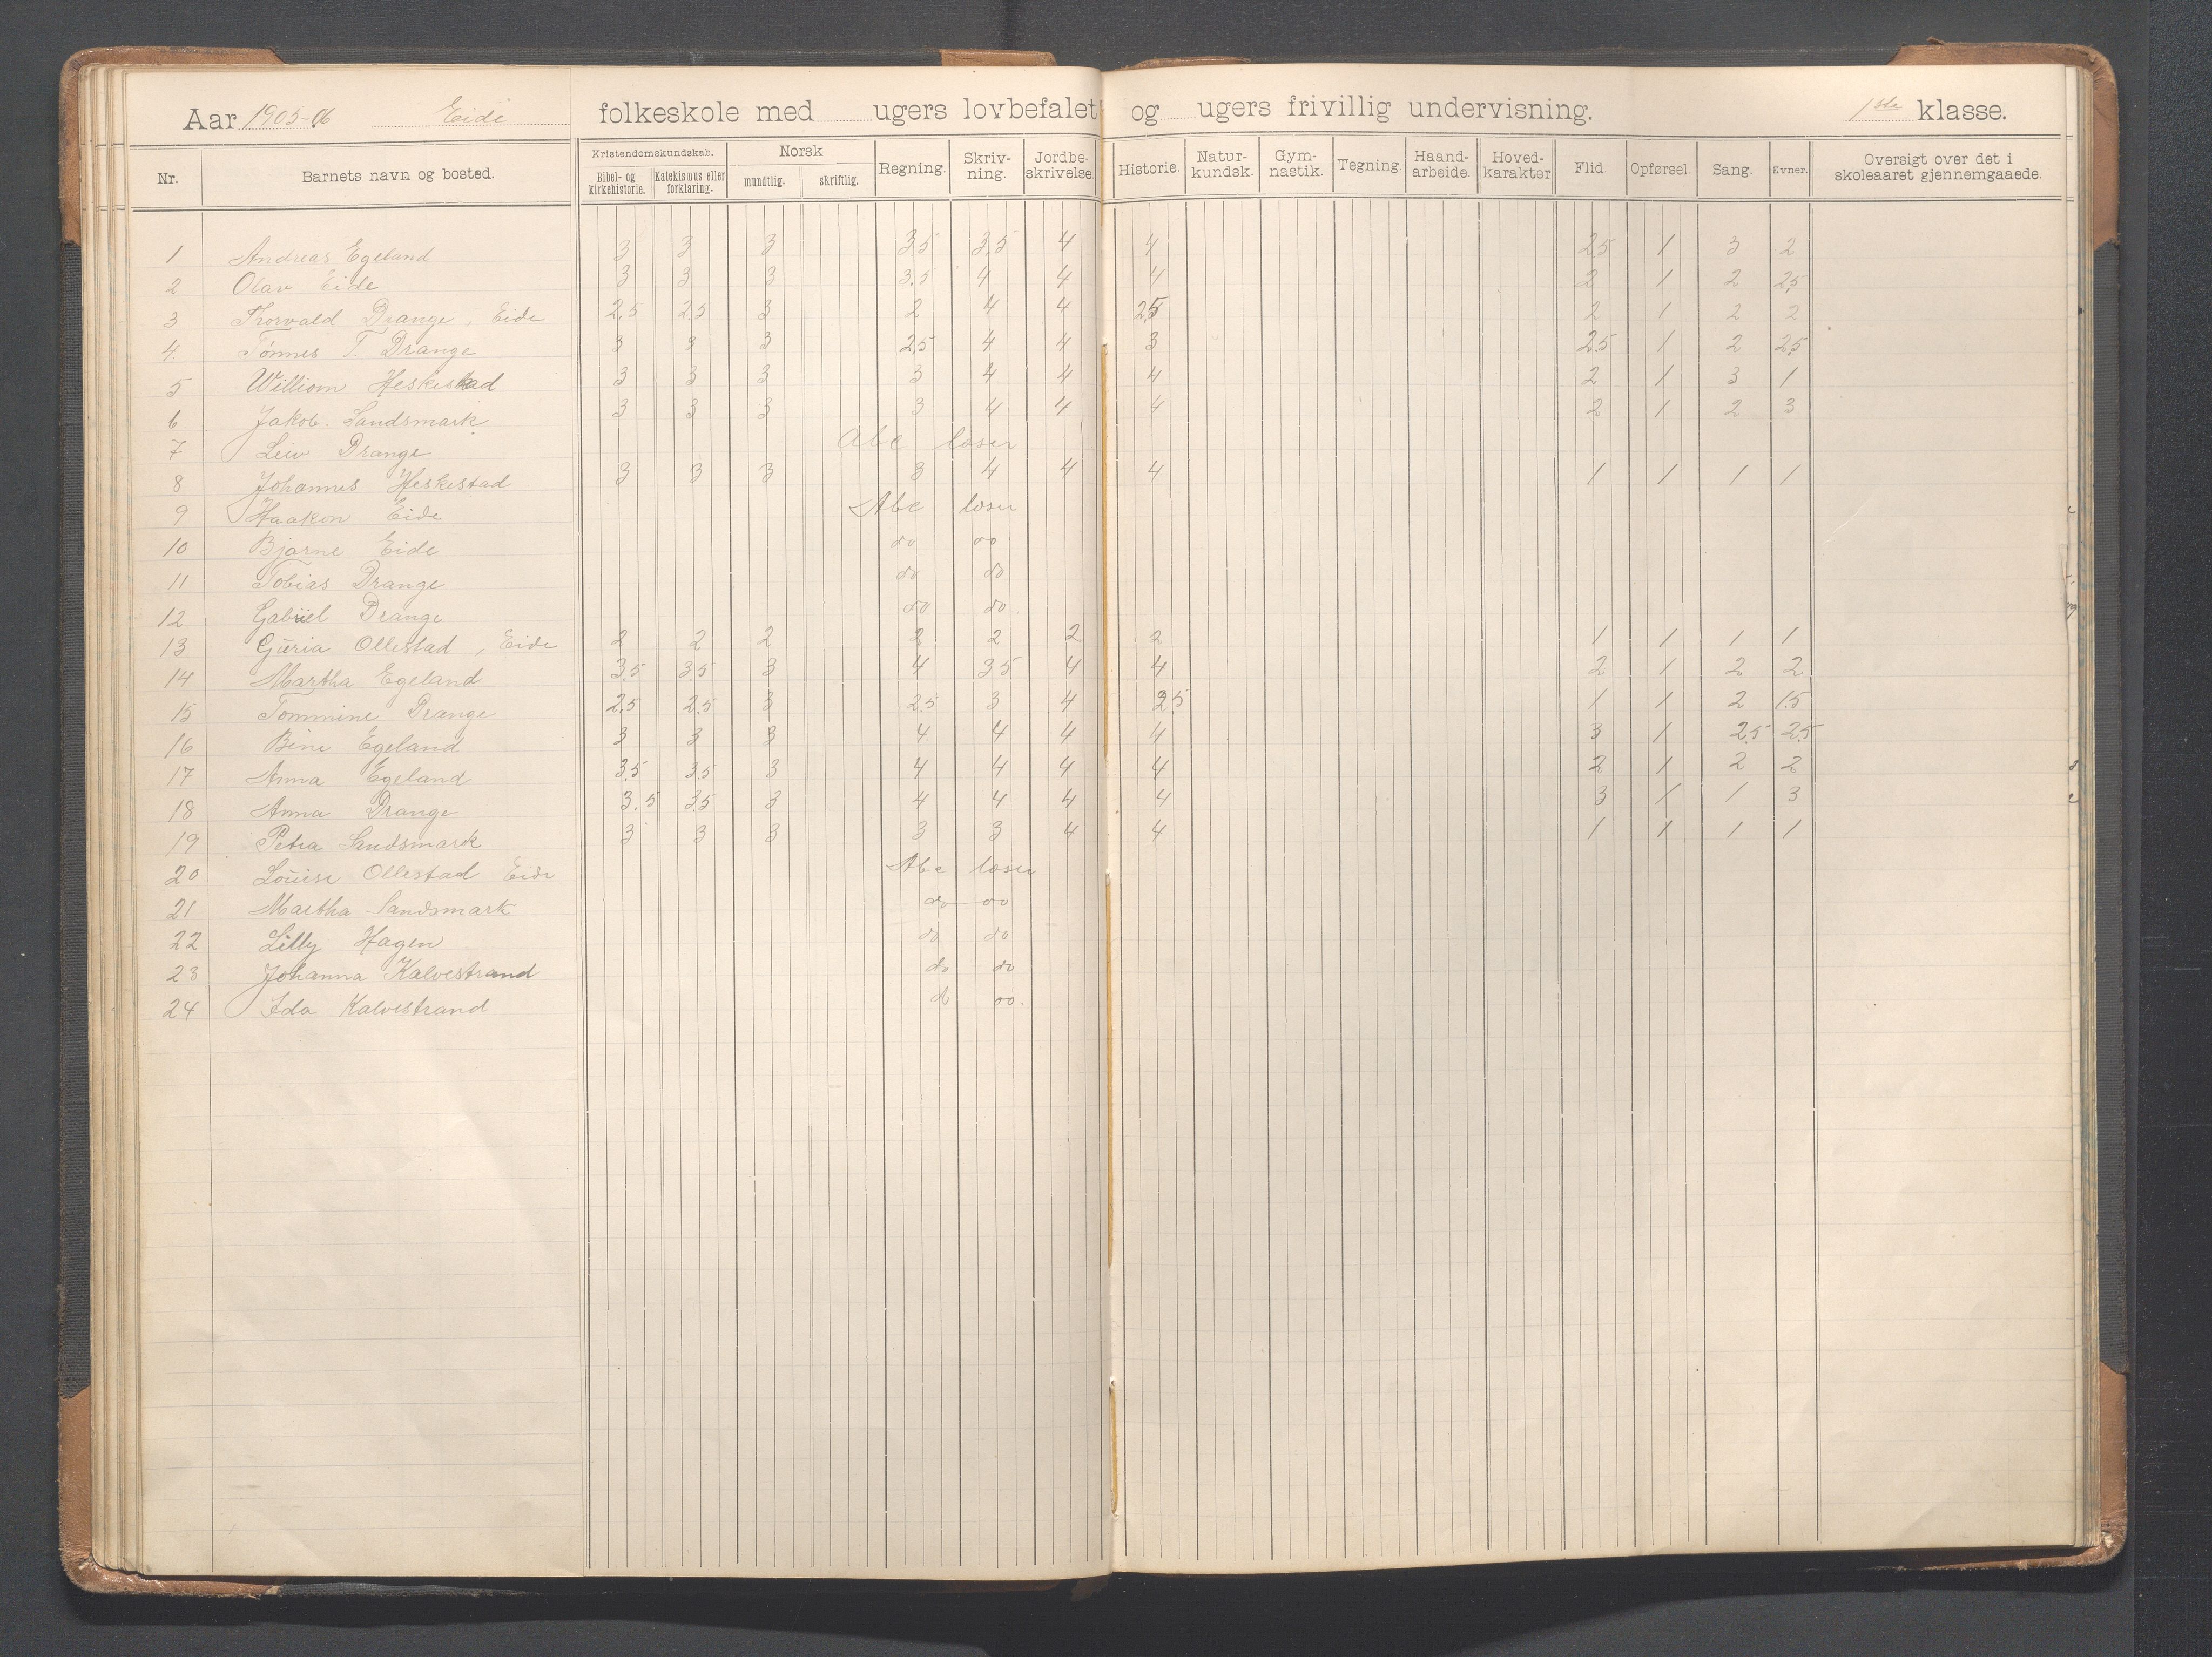 Aar 1905-06 Eide folkeskole med ugers lovbefalet og ugers frivillig undervisning. 1ste klasse.
Nr. Barnets navn og bosted. Kristendomskundskab. Bibel- og kirkehistorie. Katekismus eller forklaring. Norsk mundtlig. skriftlig. Regning. Skriv-ning. Jordbe-skrivelse. Historie. Natur-kundsk. Gym-nastik. Tegning. Haand-arbeide. Hoved-karakter Flid. Opførsel. Sang. Evner. Oversigt over det i skoleaaret gjennemgaaede.
1 Andreas Egeland 3 3 3 3,5 3,5 4 4 2,5 1 3 2
2 Olav Eide 3 3 3 3,5 4 4 4 2 1 2 2,5
3 Thorvald Drange, Eide 2,5 2,5 3 2 4 4 2,5 2 1 2 2
4 Tønnes T. Drange 3 3 3 2,5 4 4 3 2,5 1 2 2,5
5 William Heskestad 3 3 3 3 4 4 4 2 1 3 1
6 Jakob. Sandsmark 3 3 3 3 4 4 4 2 1 2 3
7 Leiv Drange Abc læser
8 Johannes Heskestad 3 3 3 3 4 4 4 1 1 1 1
9 Haakon Eide Abc læser
10 Bjarne Eide do do
11 Tobias Drange do do
12 Gabriel Drange do do
13 Guria Ollestad, Eide 2 2 2 2 2 2 2 1 1 1 1
14 Martha Egeland 3,5 3,5 3 4 3,5 4 4 2 1 2 2
15 Tommine Drange 2,5 2,5 3 2,5 3 4 2,5 1 1 2 1,5
16 Bine Egeland 3 3 3 4 4 4 4 3 1 2,5 2,5
17 Anna Egeland 3,5 3,5 3 4 4 4 4 2 1 2 2
18 Anna Drange 3,5 3,5 3 4 4 4 4 3 1 1 3
19 Petra Sandsmark 3 3 3 3 3 4 4 1 1 1 1
20 Louise Ollestad Eide Abc læser
21 Martha Sandsmark do do
22 Lilly Hagen do do
23 Johanna Kalvestrand do do
24 Ida Kalvestrand do do.